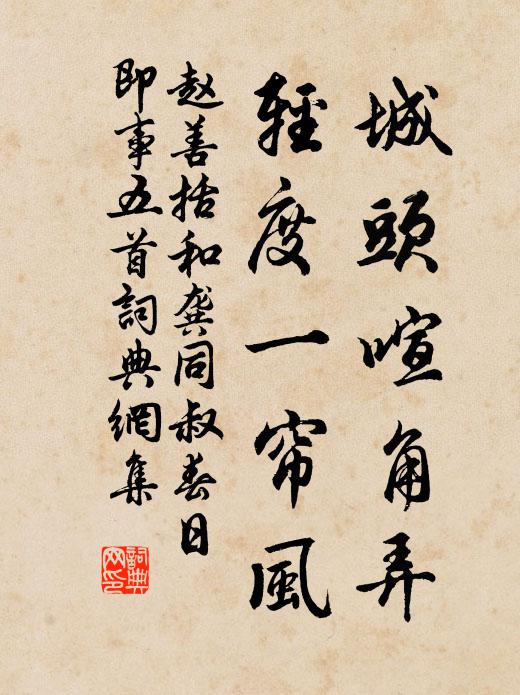 城頭喧角弄
輕度一帘風
赵善括和龚同叔春日
即事五首詞典網集
詞典
网印